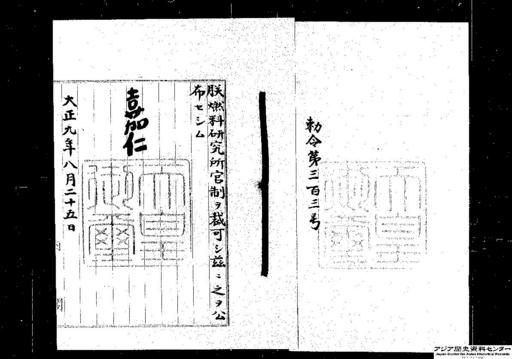 勅令第三百三号
朕燃料研究所官制ヲ裁可シ茲ニ之ヲ公
布セシム
嘉仁
天皇御璽
大正九年八月二十五日
アジア歴史資料センター
Japan Center for Asian Historical Records